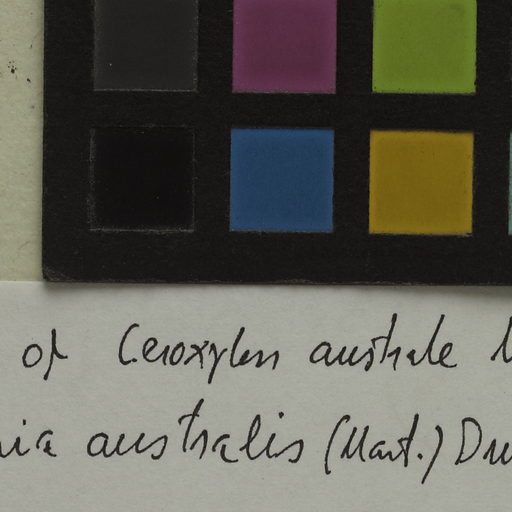 of Ceroxylon australe
australis (Mart.) Dru